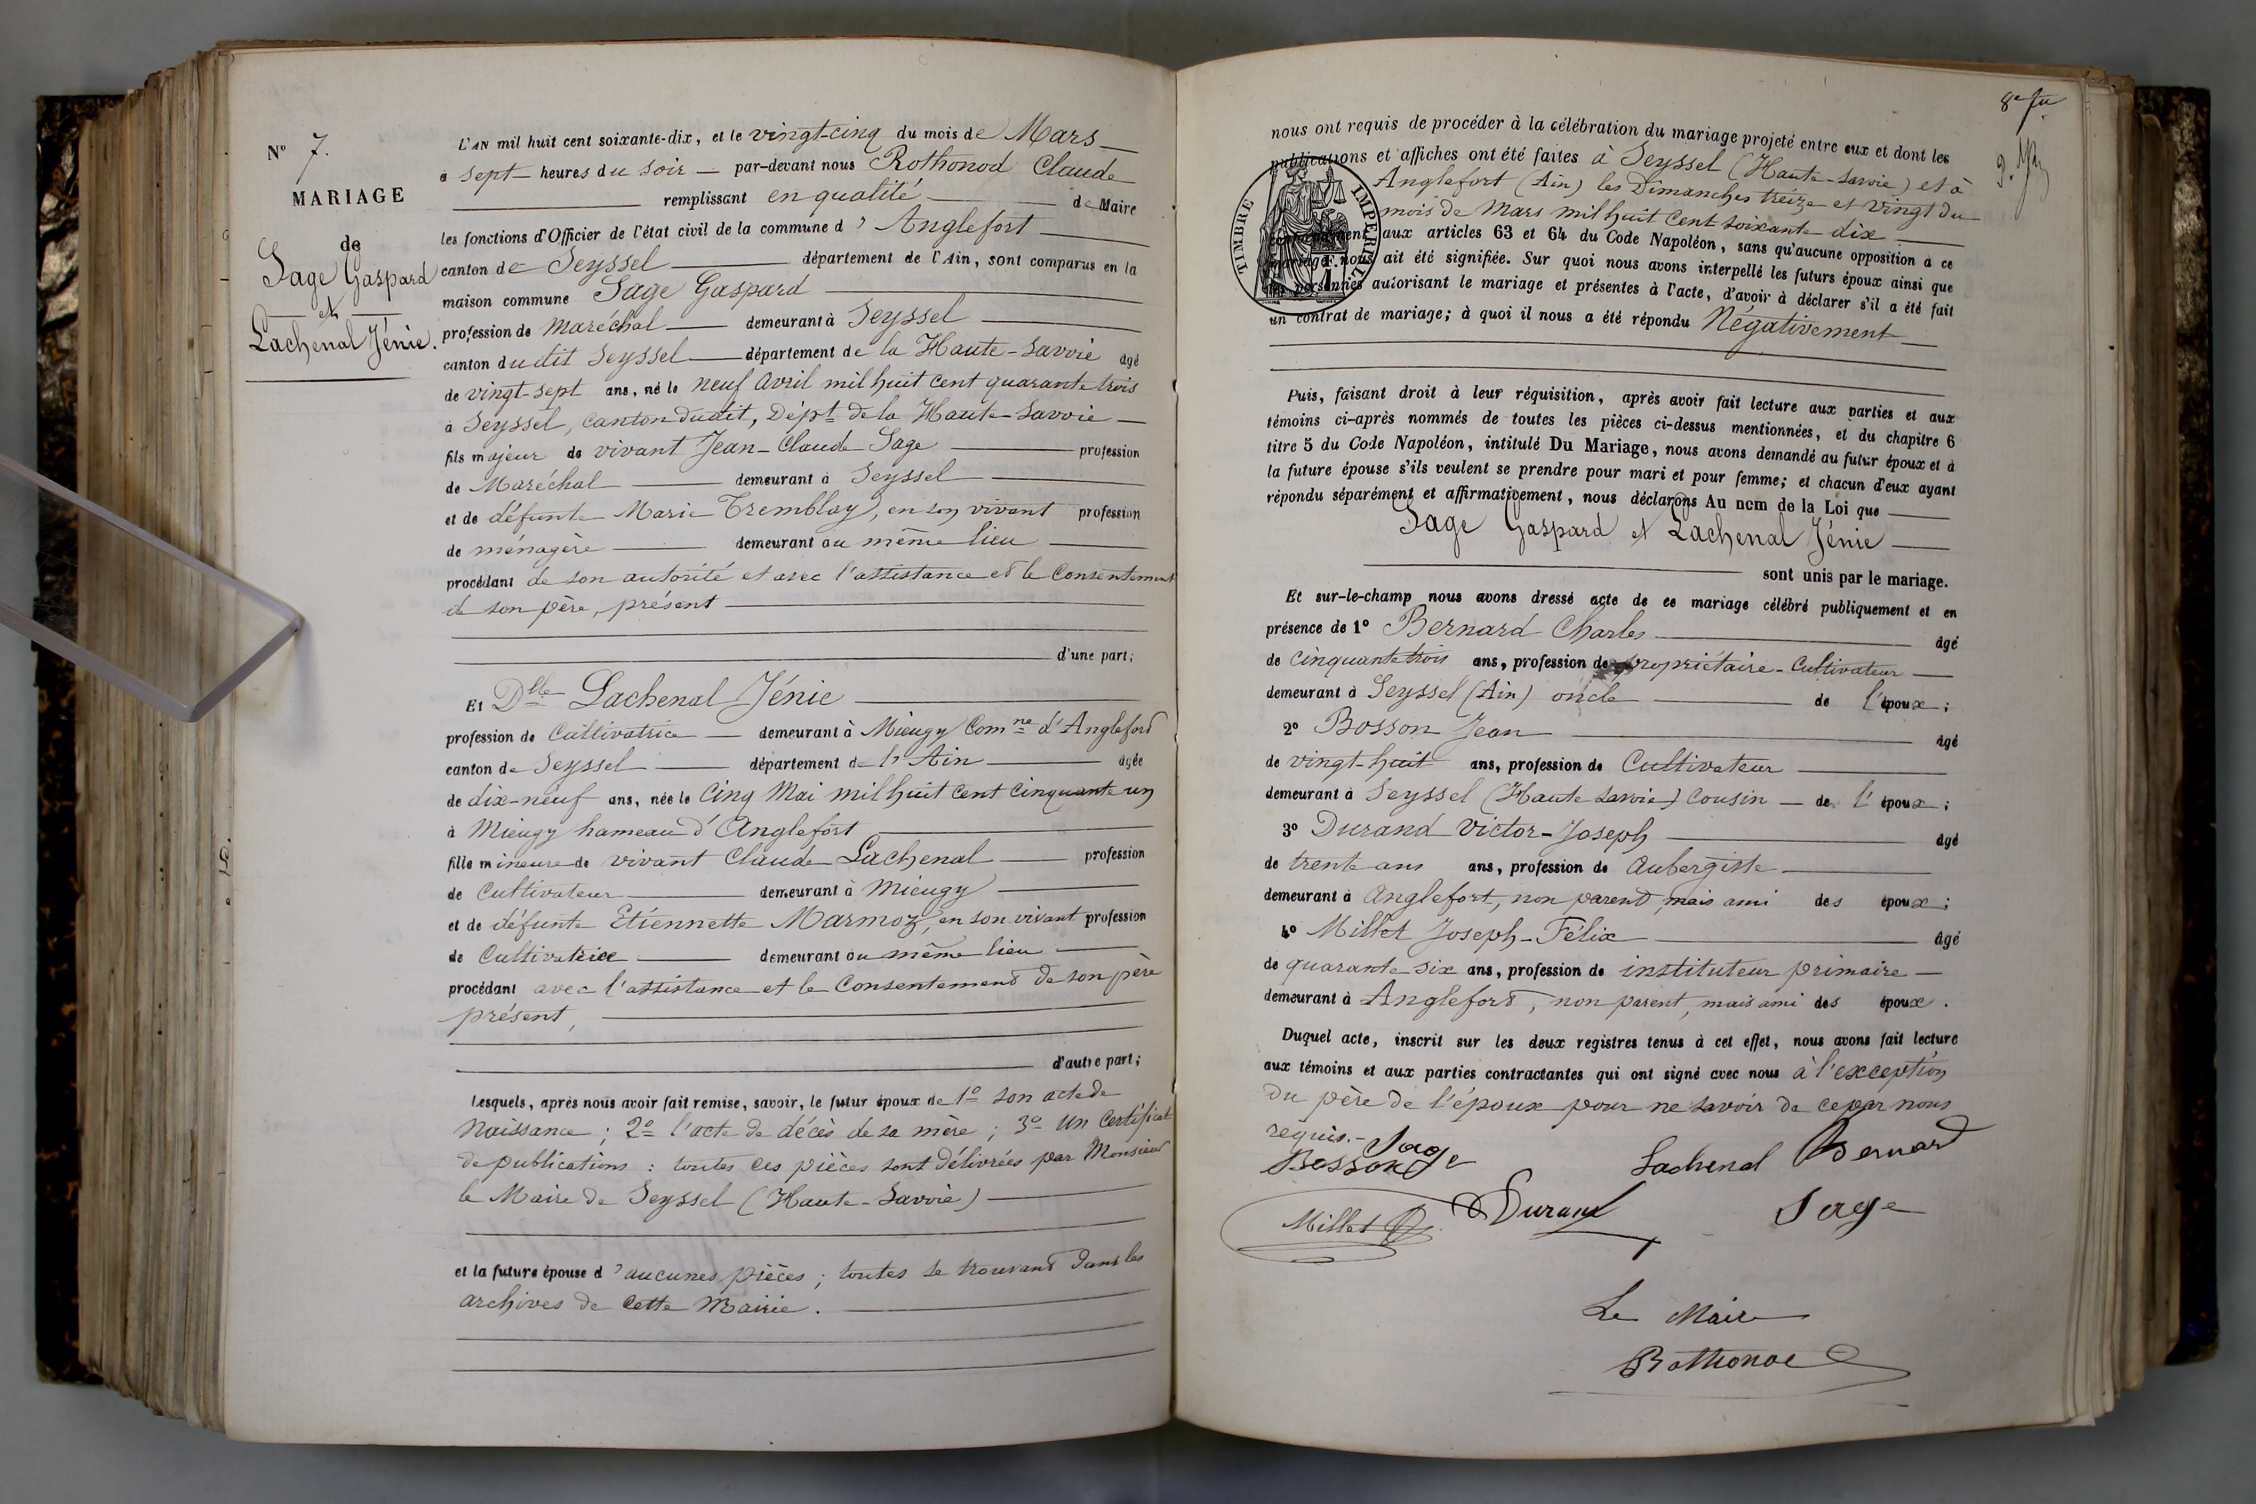 N° 7.
MARIAGE
de
Sage Gaspard
et
Lachenal Jénie.
L'AN mil huit cent soixante-dix, et le vingt-cinq du mois de Mars
à sept heures du soir par-devant nous Rothonod Claude
remplissant en qualité de Maire
les fonctions d'Officier de l'état civil de la commune d'Anglefort
canton de Seyssel département de l'Ain, sont comparus en la
maison commune Sage Gaspard
profession de maréchal demeurant à Seyssel
canton dudit Seyssel département de la Haute-Savoie âgé
de vingt-sept ans, né le neuf avril mil huit cent quarante trois
à Seyssel, canton dudit, Dépt de la Haute-Savoie
fils majeur de vivant Jean-Claude Sage profession
de Maréchal demeurant à Seyssel
et de défunte Marie Tremblay, en son vivant profession
de ménagère demeurant au même lieu
procédant de son autorité et avec l'assistance et le Consentement
de son père, présent
d'une part;
Et Dlle Lachenal Jénie
profession de Cultivatrice demeurant à Mieugy Comne d'Anglefort
canton de Seyssel département de l'Ain âgée
de dix-neuf ans, née le Cinq Mai mil huit Cent Cinquante un
à Mieugy hameau d'Anglefort
fille mineure de vivant Claude Lachenal profession
de Cultivateur demeurant à Mieugy
et de défunte Etiennette Marmoz, en son vivant profession
de Cultivatrice demeurant au même lieu
procédant avec l'assistance et le Consentement de son père
présent,
d'autre part;
Lesquels, après nous avoir fait remise, savoir, le futur époux de 1° son acte de
Naissance; 2° l'acte de décès de sa mère; 3° un Certificat
de publications : toutes ces pièces sont délivrées par Monsieur
le Maire de Seyssel (Haute-Savoie)
et la future épouse d'aucunes pièces; toutes se trouvant dans les
archives de cette Mairie.
8e fu
nous ont requis de procéder à la célébration du mariage projeté entre eux et dont les
publications et affiches ont été faites à Seyssel (Haute-Savoie) et à
Anglefort (Ain) les Dimanches treize et vingt du
mois de Mars mil huit Cent soixante-dix
conformément aux articles 63 et 64 du Code Napoléon, sans qu'aucune opposition à ce
mariage nous ait été signifiée. Sur quoi nous avons interpellé les futurs époux ainsi que
les personnes autorisant le mariage et présentes à l'acte, d'avoir à déclarer s'il a été fait
un contrat de mariage; à quoi il nous a été répondu Négativement
TIMBRE IMPERIAL
1 F.
Puis, faisant droit à leur réquisition, après avoir fait lecture aux parties et aux
témoins ci-après nommés de toutes les pièces ci-dessus mentionnées, et du chapitre 6
titre 5 du Code Napoléon, intitulé Du Mariage, nous avons demandé au futur époux et à
la future épouse s'ils veulent se prendre pour mari et pour femme; et chacun d'eux ayant
répondu séparément et affirmativement, nous déclarons Au nom de la Loi que
Sage Gaspard et Lachenal Jénie
sont unis par le mariage.
Et sur-le-champ nous avons dressé acte de ce mariage célébré publiquement et en
présence de 1° Bernard Charles âgé
de cinquante trois ans, profession de propriétaire-Cultivateur
demeurant à Seyssel (Ain) oncle de l'époux;
2° Bosson Jean âgé
de vingt-huit ans, profession de Cultivateur
demeurant à Seyssel (Haute Savoie) Cousin de l'époux;
3° Durand Victor-Joseph âgé
de trente ans ans, profession de Aubergiste
demeurant à Anglefort, non parent, mais ami des époux;
4° Millet Joseph-Félix âgé
de quarante six ans, profession de instituteur primaire
demeurant à Anglefort, non parent, mais ami des époux.
Duquel acte, inscrit sur les deux registres tenus à cet effet, nous avons fait lecture
aux témoins et aux parties contractantes qui ont signé avec nous à l'exception
du père de l'époux pour ne savoir de ce par nous
requis.
Sage
Bosson
Lachenal Bernard
Millet Durand Sage
Le Maire
Rothonod